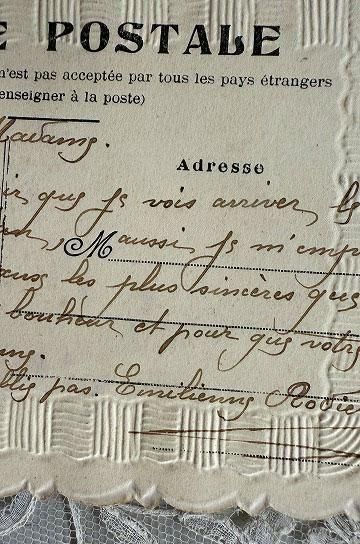 E POSTALE
n'est pas acceptée par tous les pays étrangers
enseigner à la poste)
Madame.
Adresse
que je vois arriver le
M aussi je m'emp
les plus sincères que
bonheur et pour que votre
pas. Emilienne